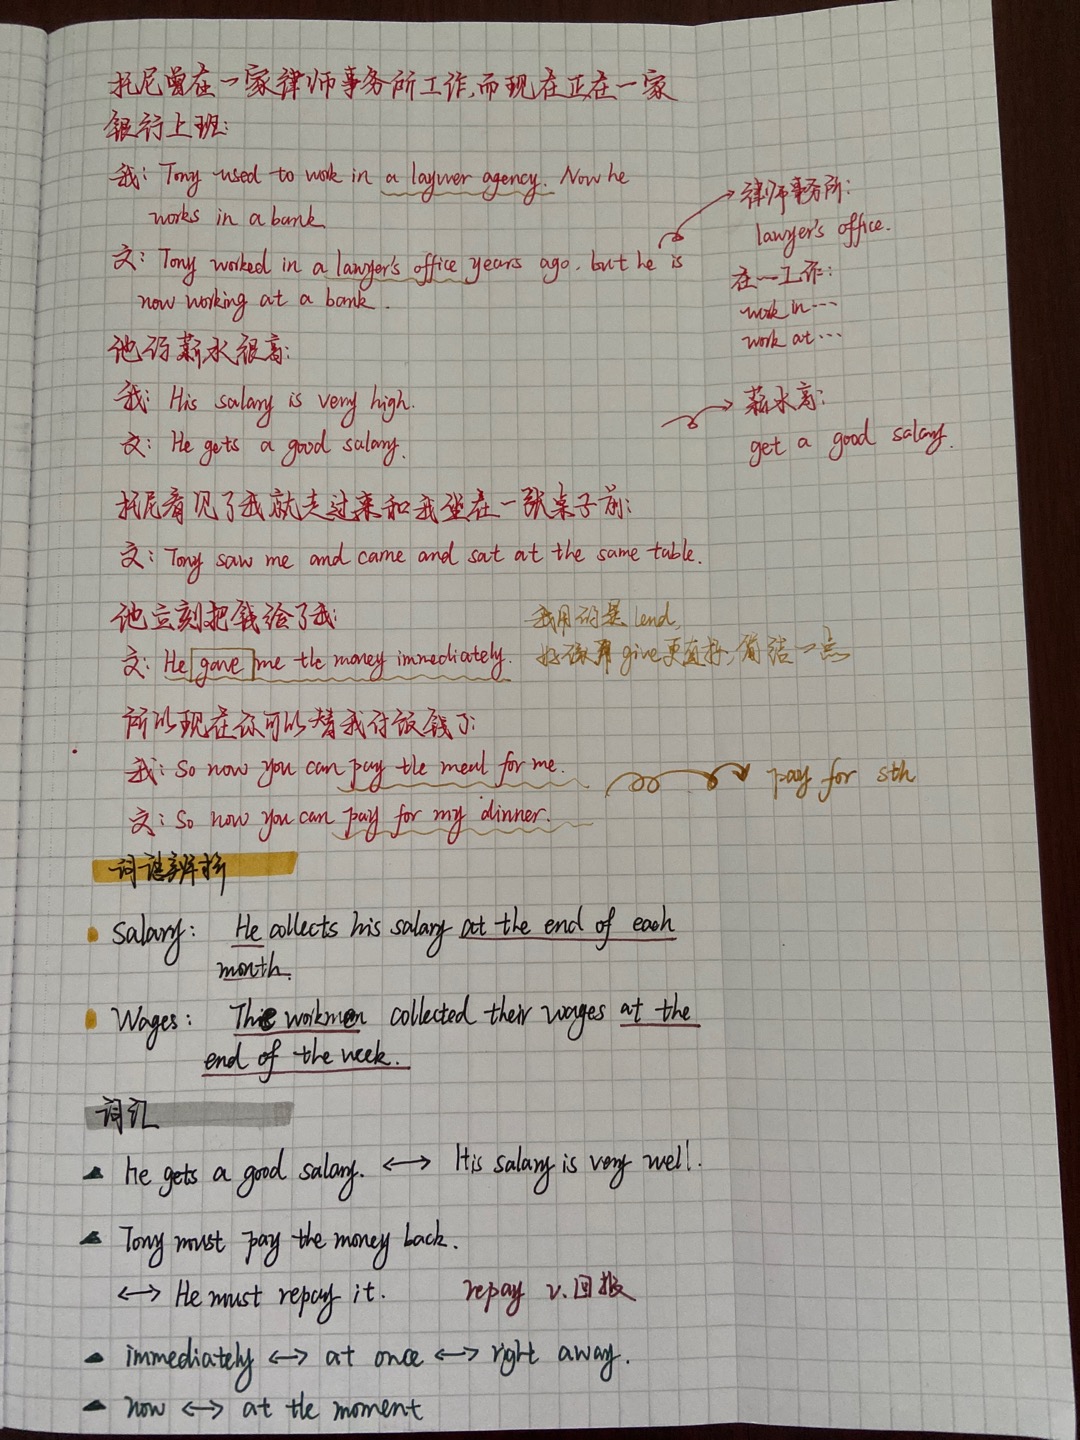 托尼曾在一家律师事务所工作,而现在正在一家
银行上班:
我: Tony used to work in a laywer agency. Now he
works in a bank
文: Tony worked in a lawyer's office years ago, but he is
now working at a bank.
律师事务所:
lawyer's office.
在一工作:
work in…
work at…
他的薪水很高:
我: His salary is very high.
文: He gets a good salary.
薪水高:
get a good salary.
托尼看见了我就走过来和我坐在一张桌子前:
文: Tony saw me and came and sat at the same table.
他立刻把钱给了我:
文: He gave me the money immediately.
我用的是lend,
好像用give更直接,简洁一点
所以现在你可以替我付饭钱了:
我: So now you can pay the meal for me.
文: So now you can pay for my dinner.
pay for sth
词语辨析
Salary: He collects his salary at the end of each
month.
Wages: The workmen collected their wages at the
end of the week.
词汇
He gets a good salary. ↔ His salary is very well.
Tony must pay the money back.
↔ He must repay it. repay v.回报
immediately ↔ at once ↔ right away.
now ↔ at the moment